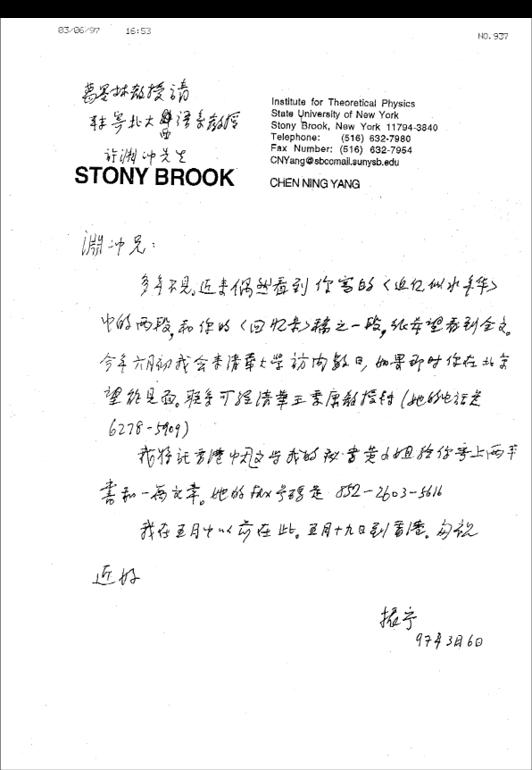 03/06/97 16:53
NO. 937
葛墨林教授请
转寄北大西语系教授
许渊冲先生
STONY BROOK
Institute for Theoretical Physics
State University of New York
Stony Brook, New York 11794-3840
Telephone: (516) 632-7980
Fax Number: (516) 632-7954
CNYang@sbccmail.sunysb.edu
CHEN NING YANG
渊冲兄:
多年不见,近来偶然看到你写的〈追忆似水年华〉
中的两段,和你的〈回忆录〉稿之一段,很希望看到全文。
今年六月初我会来清華大学访问数日,如果那时你在北京
望能见面。联系可经清華王秉康教授转(她的电话是
6278-5909)
我将託香港中文大学我的秘书黄小姐给你寄上两本
書和一两文章。她的FAX号碼是 852-2603-5616
我在五月中以前在此。五月十九日到香港。匆祝
近好
振宁
97年3月6日